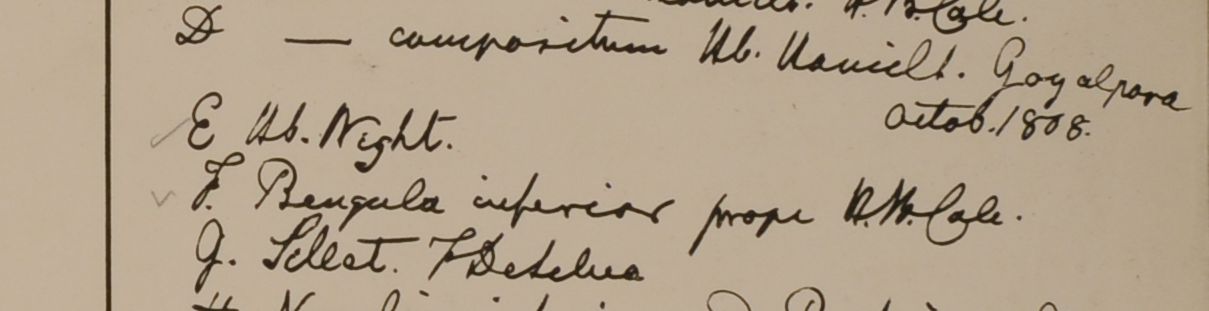 H.B. Calc.
D — compositum Hb. Hamilt. Goyalpara
Octob. 1808.
E Hb. Wight.
F. Bengala inferior prope H.B. Calc.
G. Sillet. F DeSilva